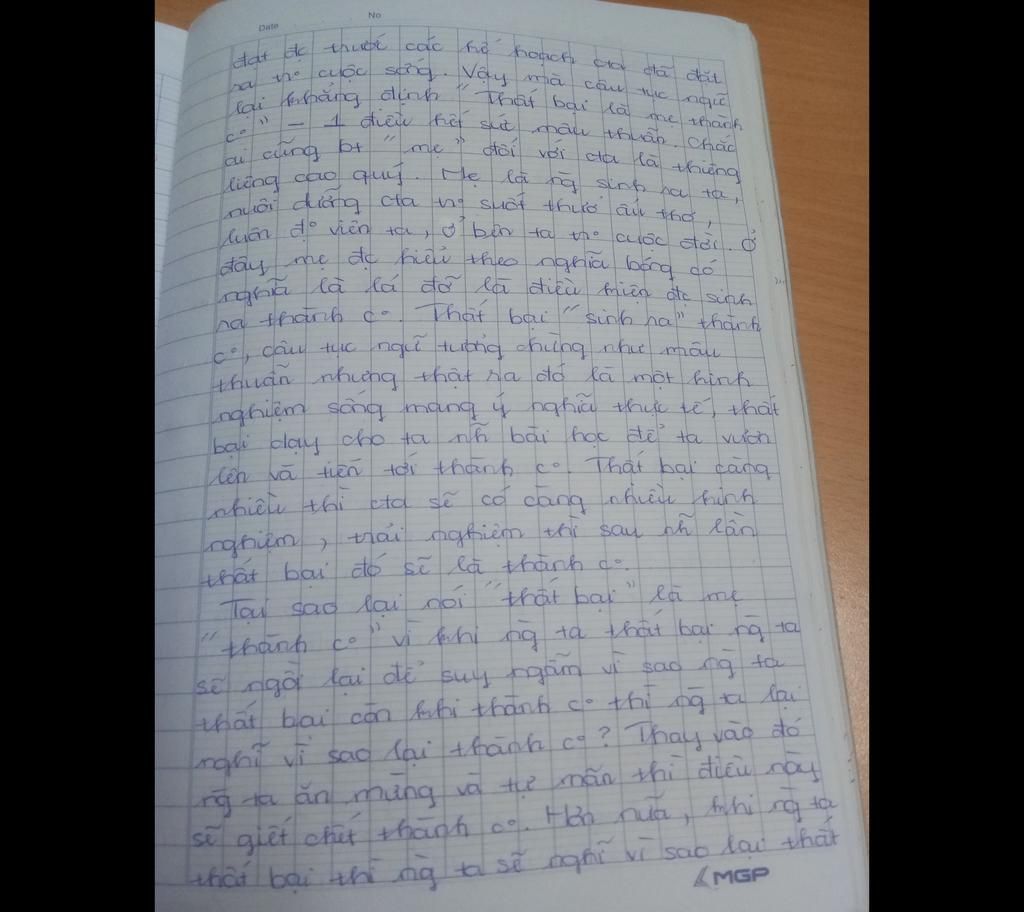 Date No
đạt đc thước các kế hoạch cta đã đặt
ra tro cuộc sống. Vậy mà câu tục ngữ
lại khẳng định "Thất bại là mẹ thành
co" – 1 điều hết sức mâu thuẫn. Chắc
ai cũng bt "mẹ" đối với cta là thiêng
liêng cao quý. Mẹ là ng sinh ra ta,
nuôi dưỡng cta tro suốt thuở ấu thơ,
luôn đo viên ta, ở bên ta tro cuộc đời. Ở
đây mẹ đc hiểu theo nghĩa bóng có
nghĩa là lá đỡ là điều kiện để sinh
ra thành co. Thất bại "sinh ra" thành
co, câu tục ngữ tưởng chừng như mâu
thuẫn nhưng thật ra đó là một kinh
nghiệm sống mang ý nghĩa thực tế, thất
bại dạy cho ta nh bài học để ta vươn
lên và tiến tới thành co. Thất bại càng
nhiều thì cta sẽ có càng nhiều kinh
nghiệm, trải nghiệm thì sau nh lần
thất bại đó sẽ là thành co.
Tại sao lại nói "thất bại" là mẹ
"thành co" vì khi ng ta thất bại ng ta
sẽ ngồi lại để suy ngẫm vì sao ng ta
thất bại còn khi thành co thì ng ta lại
nghĩ vì sao lại thành co? Thay vào đó
ng ta ăn mừng và tự mãn thì điều này
sẽ giết chết thành co. Hơn nữa, khi ng ta
thất bại thì ng ta sẽ nghĩ vì sao lại thất
MGP